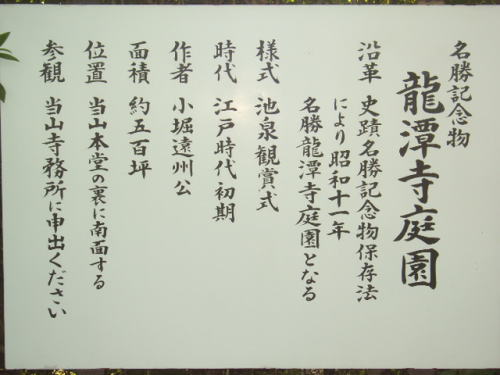 名勝記念物
龍潭寺庭園
沿革 史蹟名勝記念物保存法
により昭和十一年
名勝龍潭寺庭園となる
様式 池泉観賞式
時代 江戸時代初期
作者 小堀遠州公
面積 約五百坪
位置 当山本堂の裏に南面する
参観 当山寺務所に申出ください